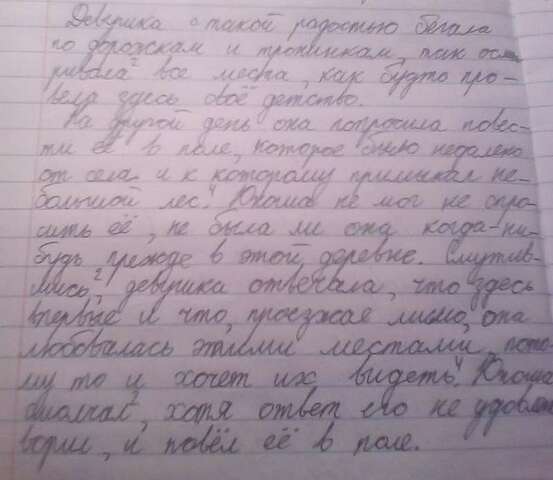 Девушка с такой радостью бегала
по дорожкам и тропинкам, так осмат-
ривала² все места, как будто про-
вела здесь своё детство.
На другой день она попросила повес-
ти её в поле, которое было недалеко
от села и к которому примыкал не-
большой лес.⁴ Юноша не мог не спро-
сить её, не была ли она когда-ни-
будь прежде в этой деревне. Смутив-
шись,² девушка отвечала, что здесь
впервые и что, проезжая мимо, она
любовалась этими местами, пото-
му то и хочет их видеть.⁴ Юноша
смолчал, хотя ответ его не удовлет
ворил, и повёл её в поле.